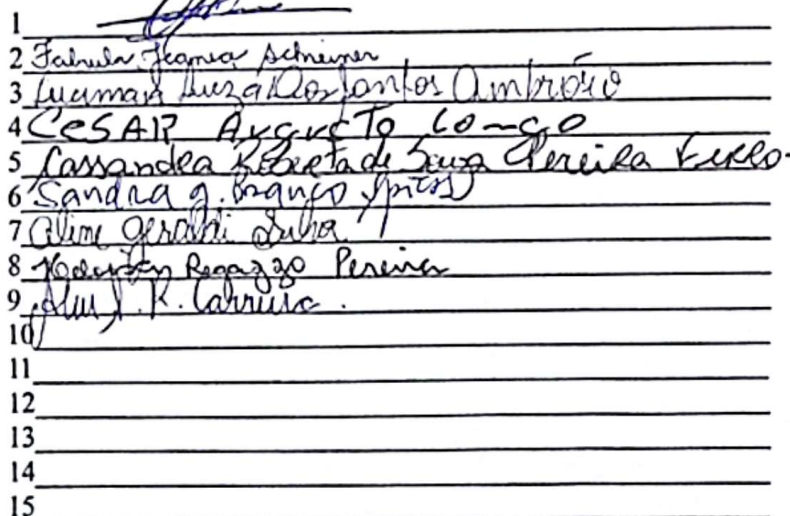 1
2 Fabiula Schreiner
3 Lucimar Luzia Dos Santos Ambrósio
4 CESAR AUGUSTO LONGO
5 Cassandra Roberta de Souza Pereira
6 Sandra g. Branco
7 Aline Geraldi Silva
8 Regazzo Pereira
9 R.
10
11
12
13
14
15